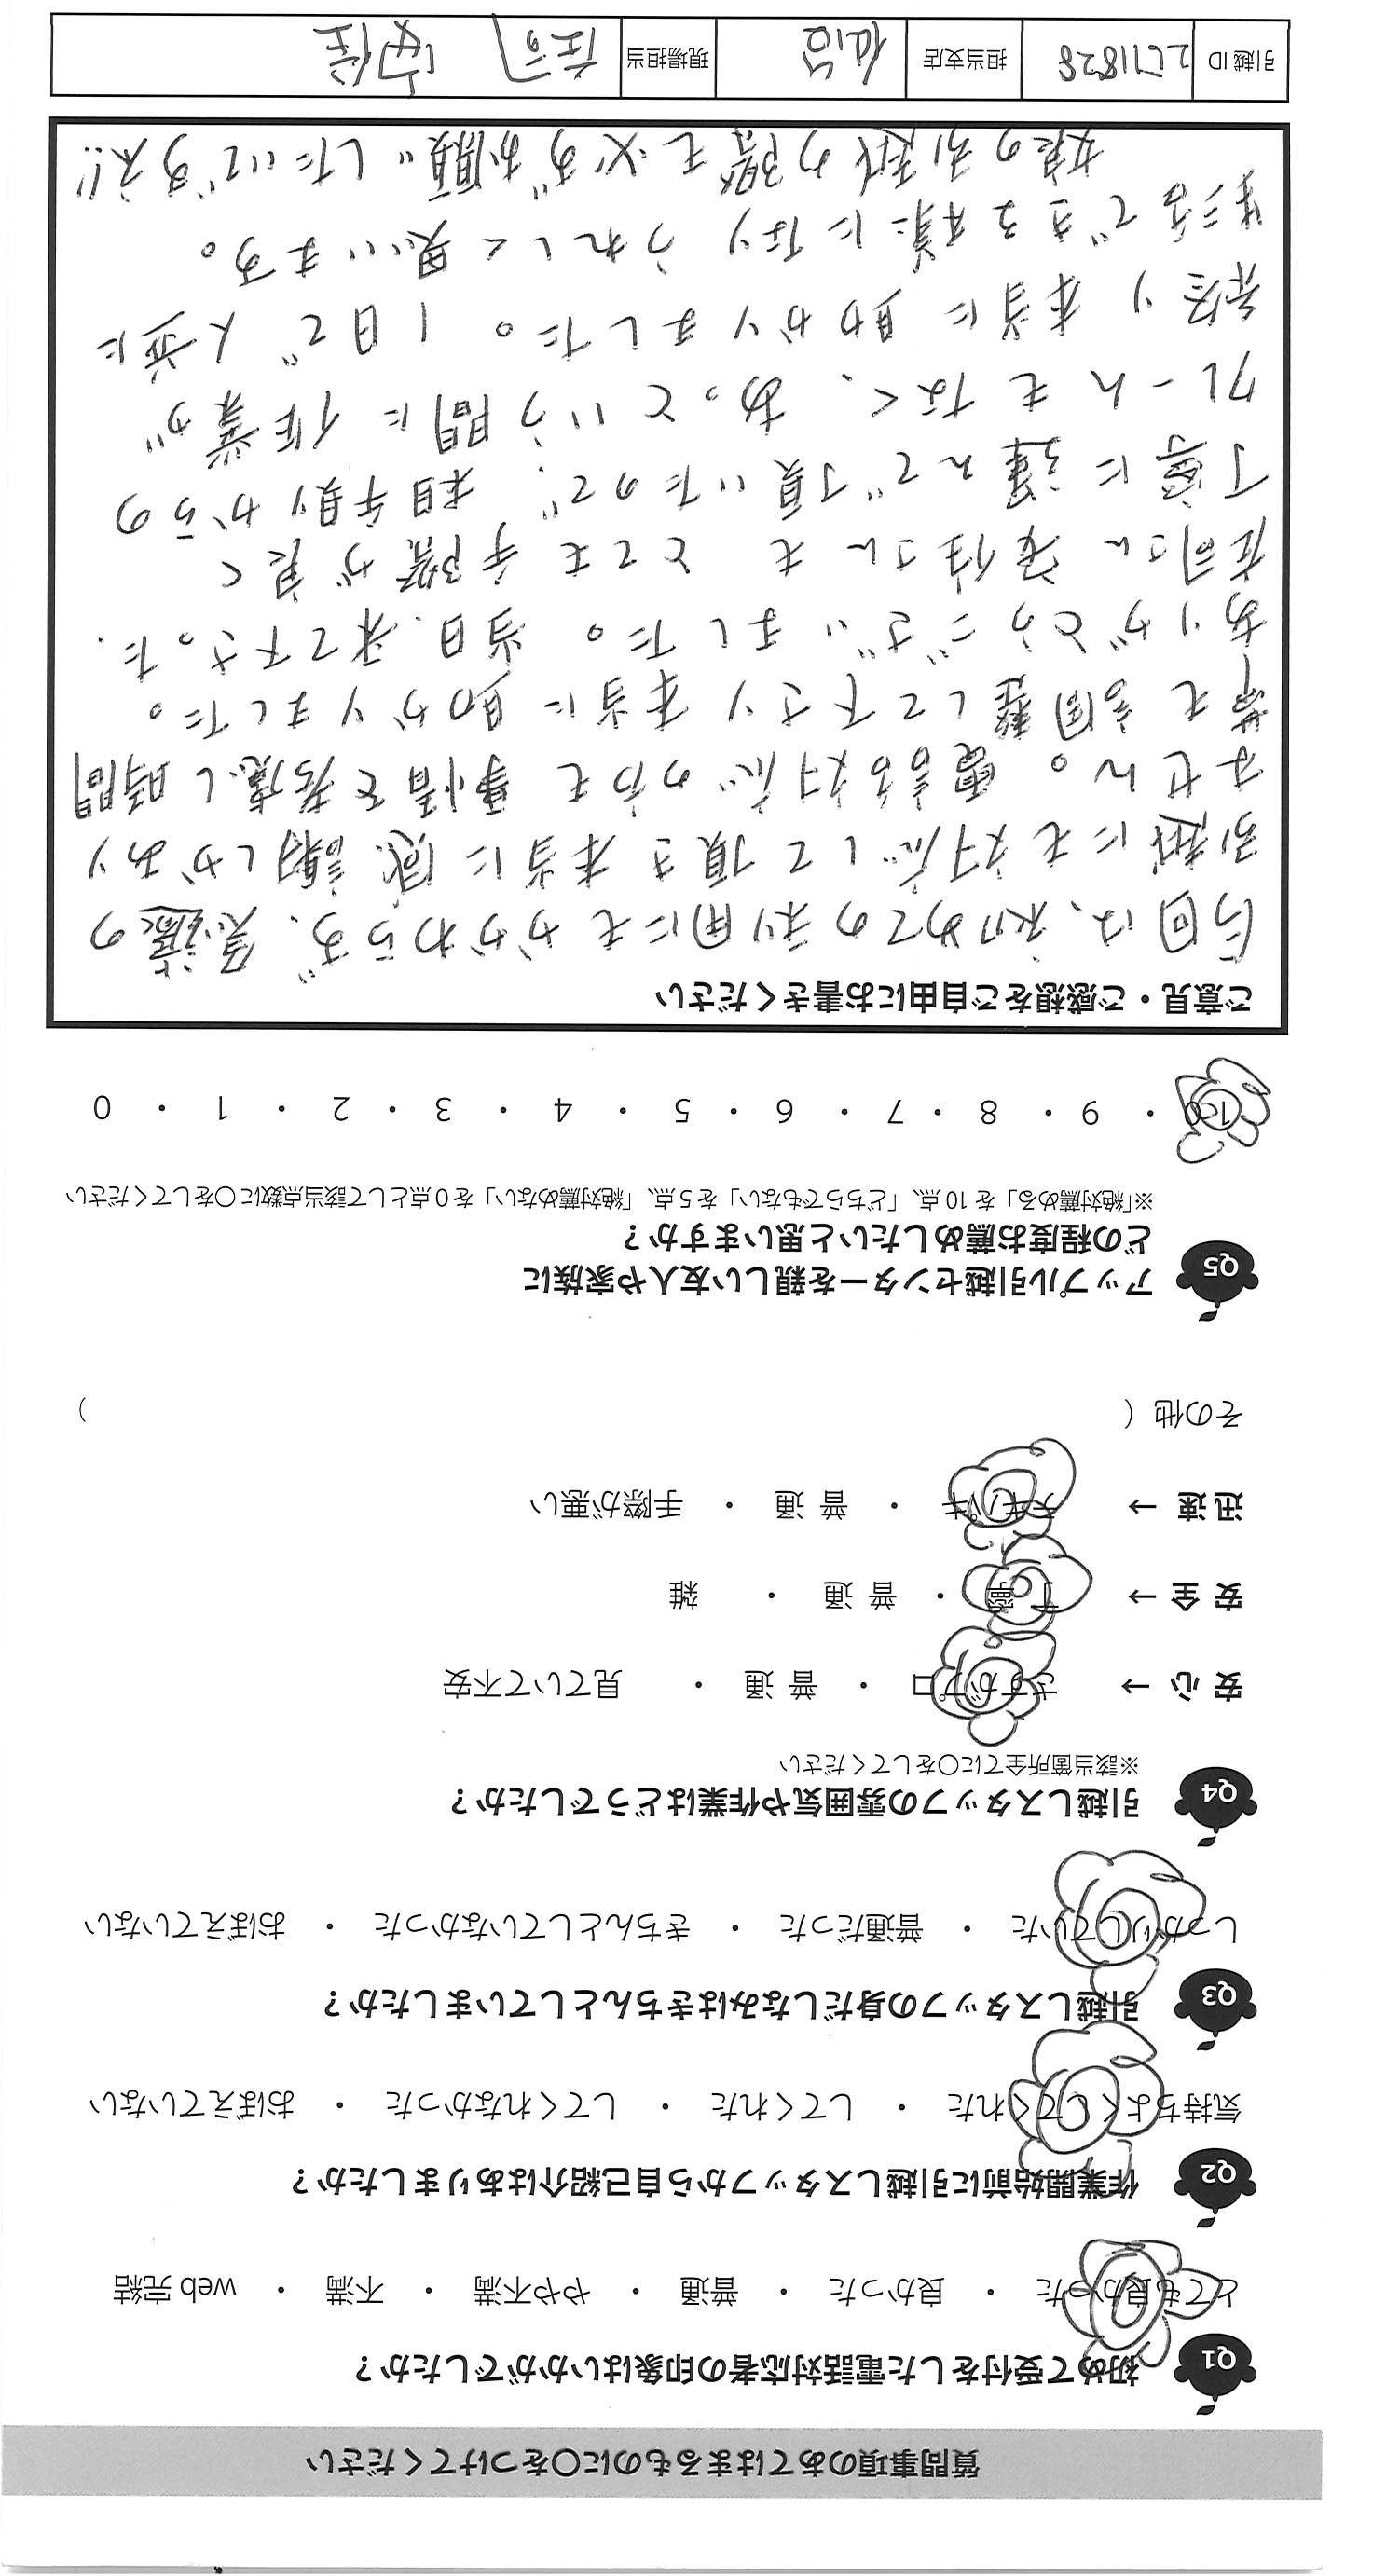 質問事項のあてはまるものに〇をつけてください
Q1 初めて受付をした電話対応者の印象はいかがでしたか？
とても良かった ・ 良かった ・ 普通 ・ やや不満 ・ 不満 ・ web 完結
Q2 作業開始前に引越しスタッフから自己紹介はありましたか？
気持ちよくしてくれた ・ してくれた ・ してくれなかった ・ おぼえていない
Q3 引越しスタッフの身だしなみはきちんとしていましたか？
しっかりしていた ・ 普通だった ・ きちんとしていなかった ・ おぼえていない
Q4 引越しスタッフの雰囲気や作業はどうでしたか？
※該当箇所全てに〇をしてください
安心 → さすがプロ ・ 普通 ・ 見ていて不安
安全 → 丁寧 ・ 普通 ・ 雑
迅速 → テキパキ ・ 普通 ・ 手際が悪い
その他（ ）
Q5 アップル引越センターを親しい友人や家族に
どの程度お薦めしたいと思いますか？
※「絶対薦める」を 10 点、「どちらでもない」を 5 点、「絶対薦めない」を 0 点として該当点数に〇をしてください
10 ・ 9 ・ 8 ・ 7 ・ 6 ・ 5 ・ 4 ・ 3 ・ 2 ・ 1 ・ 0
ご意見・ご感想をご自由にお書きください
今回は、初めての利用にもかかわらず、急遽の
引越にも対応して頂き本当に感謝しかあり
ません。電話対応の方も事情を考慮し時間
帯も調整して下さり本当に助かりました。
ありがとうございました。当日、来て下さった、
左司さん 安住さんも とても 手際が良く
丁寧に運んで頂いたので、相手取りからの
クレームもなく、あっという間に作業が
終り 本当に助かりました。1日で人並に
生活できる様になり うれしく思います。
嬢の引越の際も必ずお願いしたいですえ!!
引越 ID 2611828 担当支店 仙台 現場担当 左司 安住